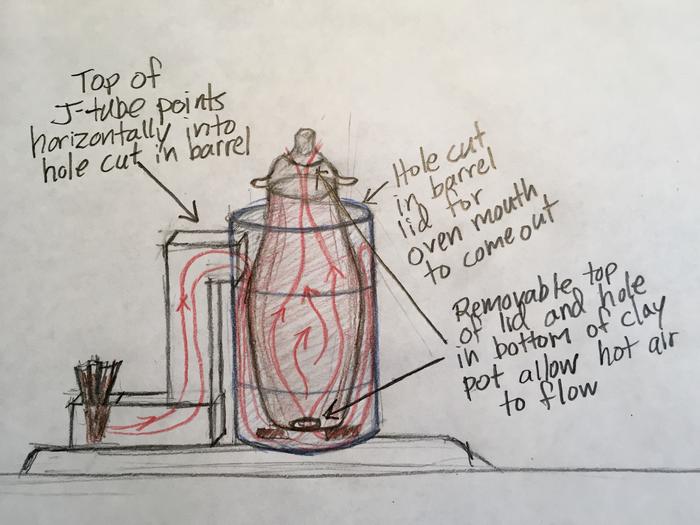 Top of
J-tube points
horizontally into
hole cut in barrel
Hole cut
in barrel
lid for
oven mouth
to come out
Removable top
of lid and hole
in bottom of clay
pot allow hot air
to flow